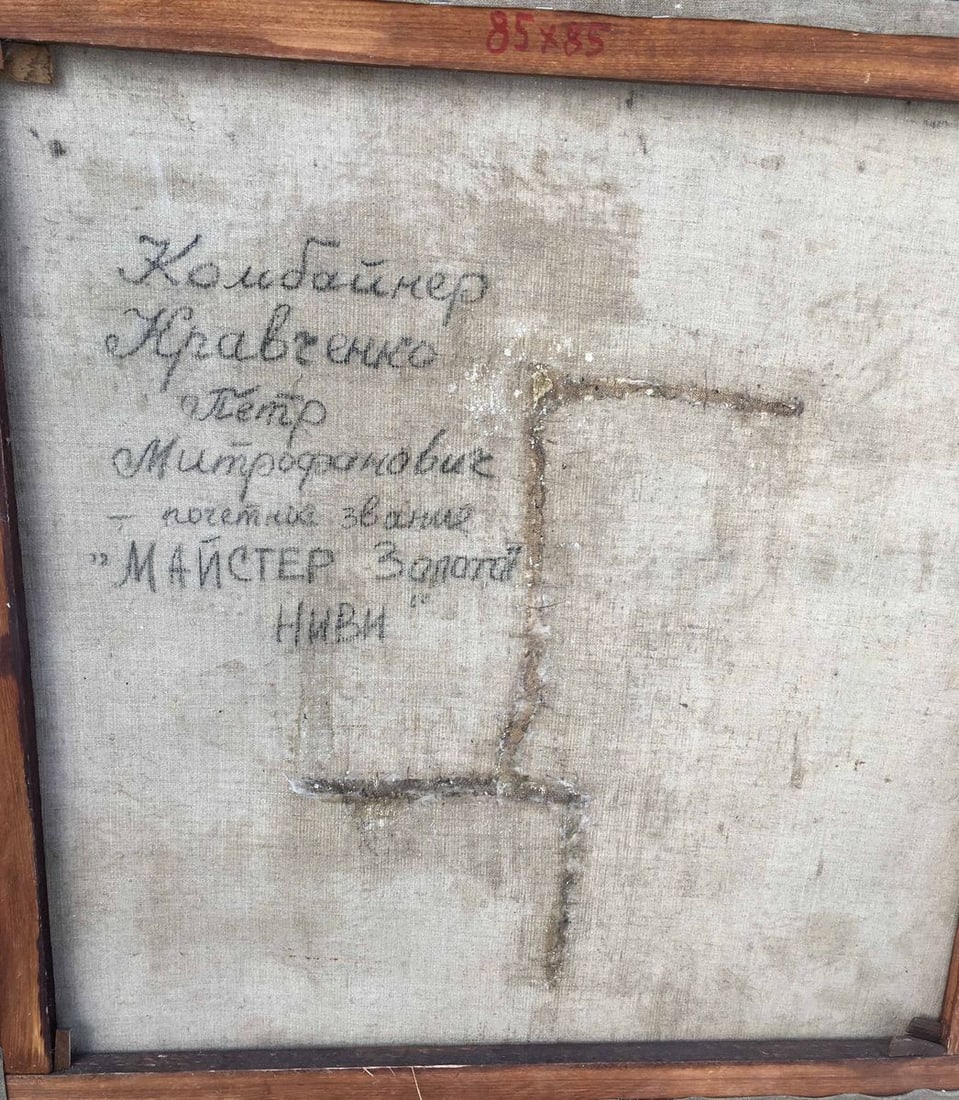 85х85
Комбайнер
Кравченко
Петр
Митрофанович
– почетное звание
„МАЙСТЕР Золотої
Ниви"